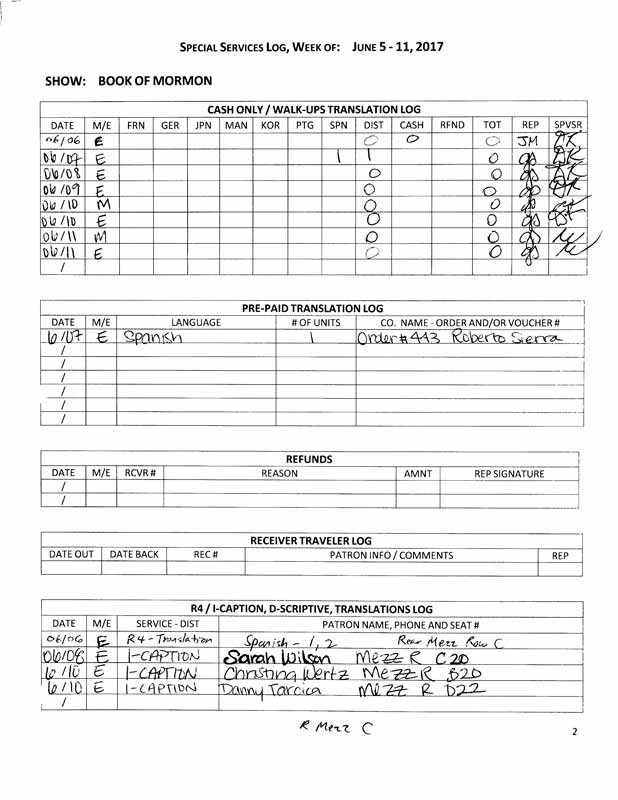 SPECIAL SERVICES LOG, WEEK OF: JUNE 5 - 11, 2017
SHOW: BOOK OF MORMON
CASH ONLY / WALK-UPS TRANSLATION LOG
DATE M/E FRN GER JPN MAN KOR PTG SPN DIST CASH RFND TOT REP SPVSR
06/06 E 0 0 0 JM
06/07 E 1 1 0
06/08 E 0 0
06/09 E 0 0
06/10 M 0 0
06/10 E 0 0
06/11 M 0 0
06/11 E 0 0
/
PRE-PAID TRANSLATION LOG
DATE M/E LANGUAGE # OF UNITS CO. NAME - ORDER AND/OR VOUCHER #
6/07 E Spanish 1 Order # 443 Roberto Sierra
/
/
/
/
/
REFUNDS
DATE M/E RCVR # REASON AMNT REP SIGNATURE
/
/
RECEIVER TRAVELER LOG
DATE OUT DATE BACK REC # PATRON INFO / COMMENTS REP
R4 / I-CAPTION, D-SCRIPTIVE, TRANSLATIONS LOG
DATE M/E SERVICE - DIST PATRON NAME, PHONE AND SEAT #
06/06 E R4 - Translation Spanish - 1, 2 Rear Mezz Row C
06/08 E I-CAPTION Sarah Wilson Mezz R C20
6/10 E I-CAPTION Christing Wertz Mezz R B20
6/10 E I-CAPTION Danny Tarcica Mezz R D22
/
R Mezz C
2